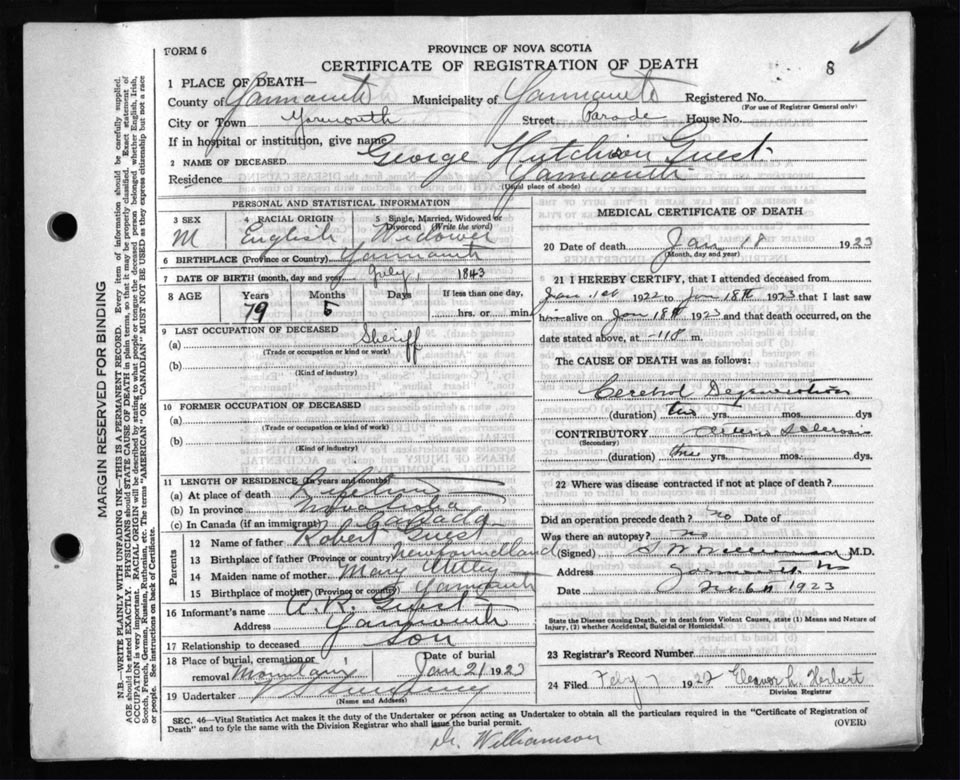 FORM 6
PROVINCE OF NOVA SCOTIA
CERTIFICATE OF REGISTRATION OF DEATH
8
1 PLACE OF DEATH—
County of Yarmouth Municipality of Yarmouth Registered No.
(For use of Registrar General only)
City or Town Yarmouth Street Parade House No.
If in hospital or institution, give name
2 NAME OF DECEASED George Guest
Residence Yarmouth
(Usual place of abode)
PERSONAL AND STATISTICAL INFORMATION
3 SEX 4 RACIAL ORIGIN 5 Single, Married, Widowed or Divorced (Write the word)
M English Widower
6 BIRTHPLACE (Province or Country) Yarmouth
7 DATE OF BIRTH (month, day and year) July 1843
8 AGE Years Months Days If less than one day,
79 hrs. or min
9 LAST OCCUPATION OF DECEASED
(a) Sheriff
(Trade or occupation or kind or work)
(b)
(Kind of industry)
10 FORMER OCCUPATION OF DECEASED
(a)
(Trade or occupation or kind of work)
(b)
(Kind of industry)
11 LENGTH OF RESIDENCE (In years and months)
(a) At place of death
(b) In province Nova Scotia
(c) In Canada (if an immigrant) Canada
Parents
12 Name of father Robert Guest
13 Birthplace of father (Province or country) Newfoundland
14 Maiden name of mother Mary Utley
15 Birthplace of mother (Province or country) Yarmouth
16 Informant's name Guest
Address Yarmouth
17 Relationship to deceased Son
18 Place of burial, cremation or removal Date of burial
Jan 21 1923
19 Undertaker
(Name and Address)
MEDICAL CERTIFICATE OF DEATH
20 Date of death Jan 18 1923
(Month, day and year)
21 I HEREBY CERTIFY, that I attended deceased from
Jan 1st 1922 to Jan 18th 1923 that I last saw
him alive on Jan 18th 1923 and that death occurred, on
date stated above, at m.
The CAUSE OF DEATH was as follows:
Cerebral Degeneration
(duration) two yrs. mos. dys
CONTRIBUTORY Arterio Sclerosis
(Secondary)
(duration) yrs. mos. dys.
22 Where was disease contracted if not at place of death?
Did an operation precede death? no Date of
Was there an autopsy? no
(Signed) Williamson M.D.
Address Yarmouth NS
Date 1923
State the Disease causing Death, or in death from Violent Causes, state (1) Means and Nature of Injury, (2) whether Accidental, Suicidal or Homicidal.
23 Registrar's Record Number
24 Filed Feby 7 1922 Eleanor L. Herbert
Division Registrar
SEC. 46—Vital Statistics Act makes it the duty of the Undertaker or person acting as Undertaker to obtain all the particulars required in the "Certificate of Registration of
Death" and to fyle the same with the Division Registrar who shall issue the burial permit. (OVER)
Dr. Williamson
MARGIN RESERVED FOR BINDING
N.B.—WRITE PLAINLY WITH UNFADING INK—THIS IS A PERMANENT RECORD. Every item of information should be carefully supplied.
AGE should be stated EXACTLY. PHYSICIANS should STATE CAUSE OF DEATH in plain terms, so that it may be properly classified. Exact statement of
OCCUPATION is very important. RACIAL ORIGIN will be described by stating to what people or tongue the deceased person belonged whether English, Irish,
Scotch, French, German, Russian, Ruthenian, etc. The terms "AMERICAN" OR "CANADIAN" MUST NOT BE USED as they express citizenship but not a race
or people. See instructions on back of Certificate.